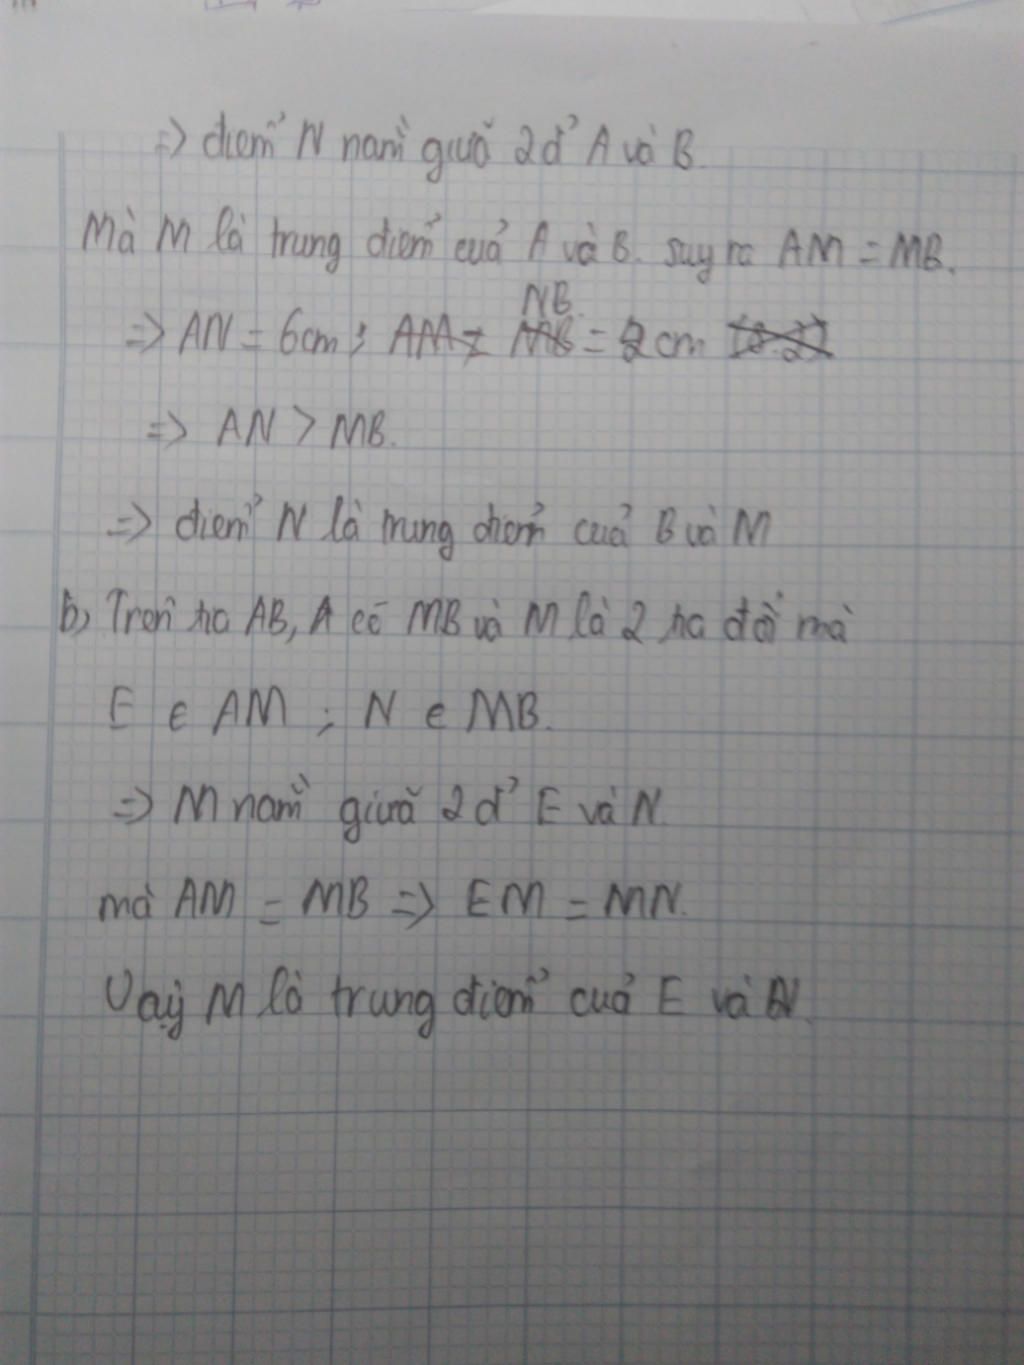 => điểm N nằm giữa 2 đ' A và B.
Mà M là trung điểm của A và B. suy ra AM = MB.
NB.
=> AN = 6cm; AM = MB = 2cm
=> AN > MB.
=> điểm N là trung điểm của B và M
b, Trên tia AB, A có MB và M là 2 tia đối mà
E ∈ AM ; N ∈ MB.
=> M nằm giữa 2 đ' E và N.
mà AM = MB => EM = MN.
Vậy M là trung điểm của E và N.